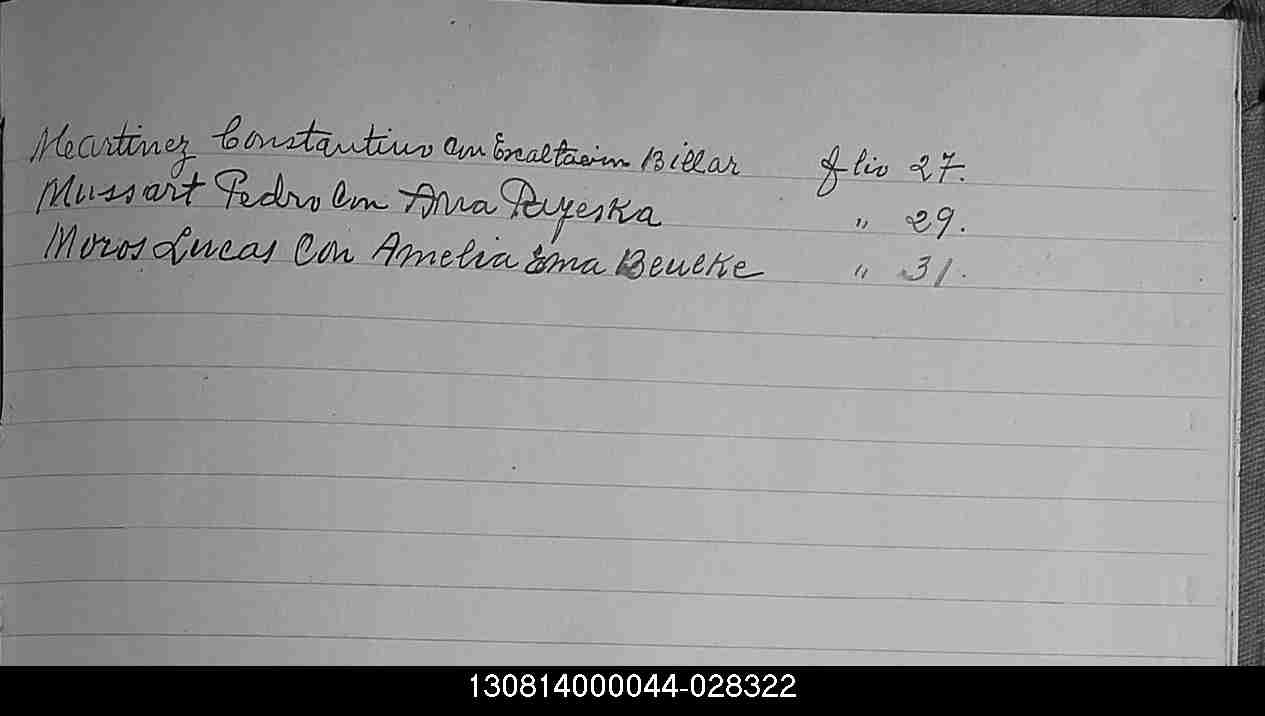 Martinez Constantino con Exaltacion Billar folio 27.
Mussart Pedro Con Ana Payeska " 29.
Moros Lucas Con Amelia Ema Beueke " 31.
130814000044-028322